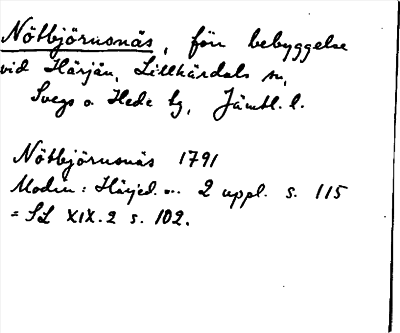 Nötbjörnsnäs, förr bebyggelse
vid Härjån, Lillhärdals sn,
Svegs o. Hede tg, Jämtl. l.
Nötbjörnsnäs 1791
Modin: Härjed. ... 2 uppl. s. 115
= SL XIX.2 s. 102.